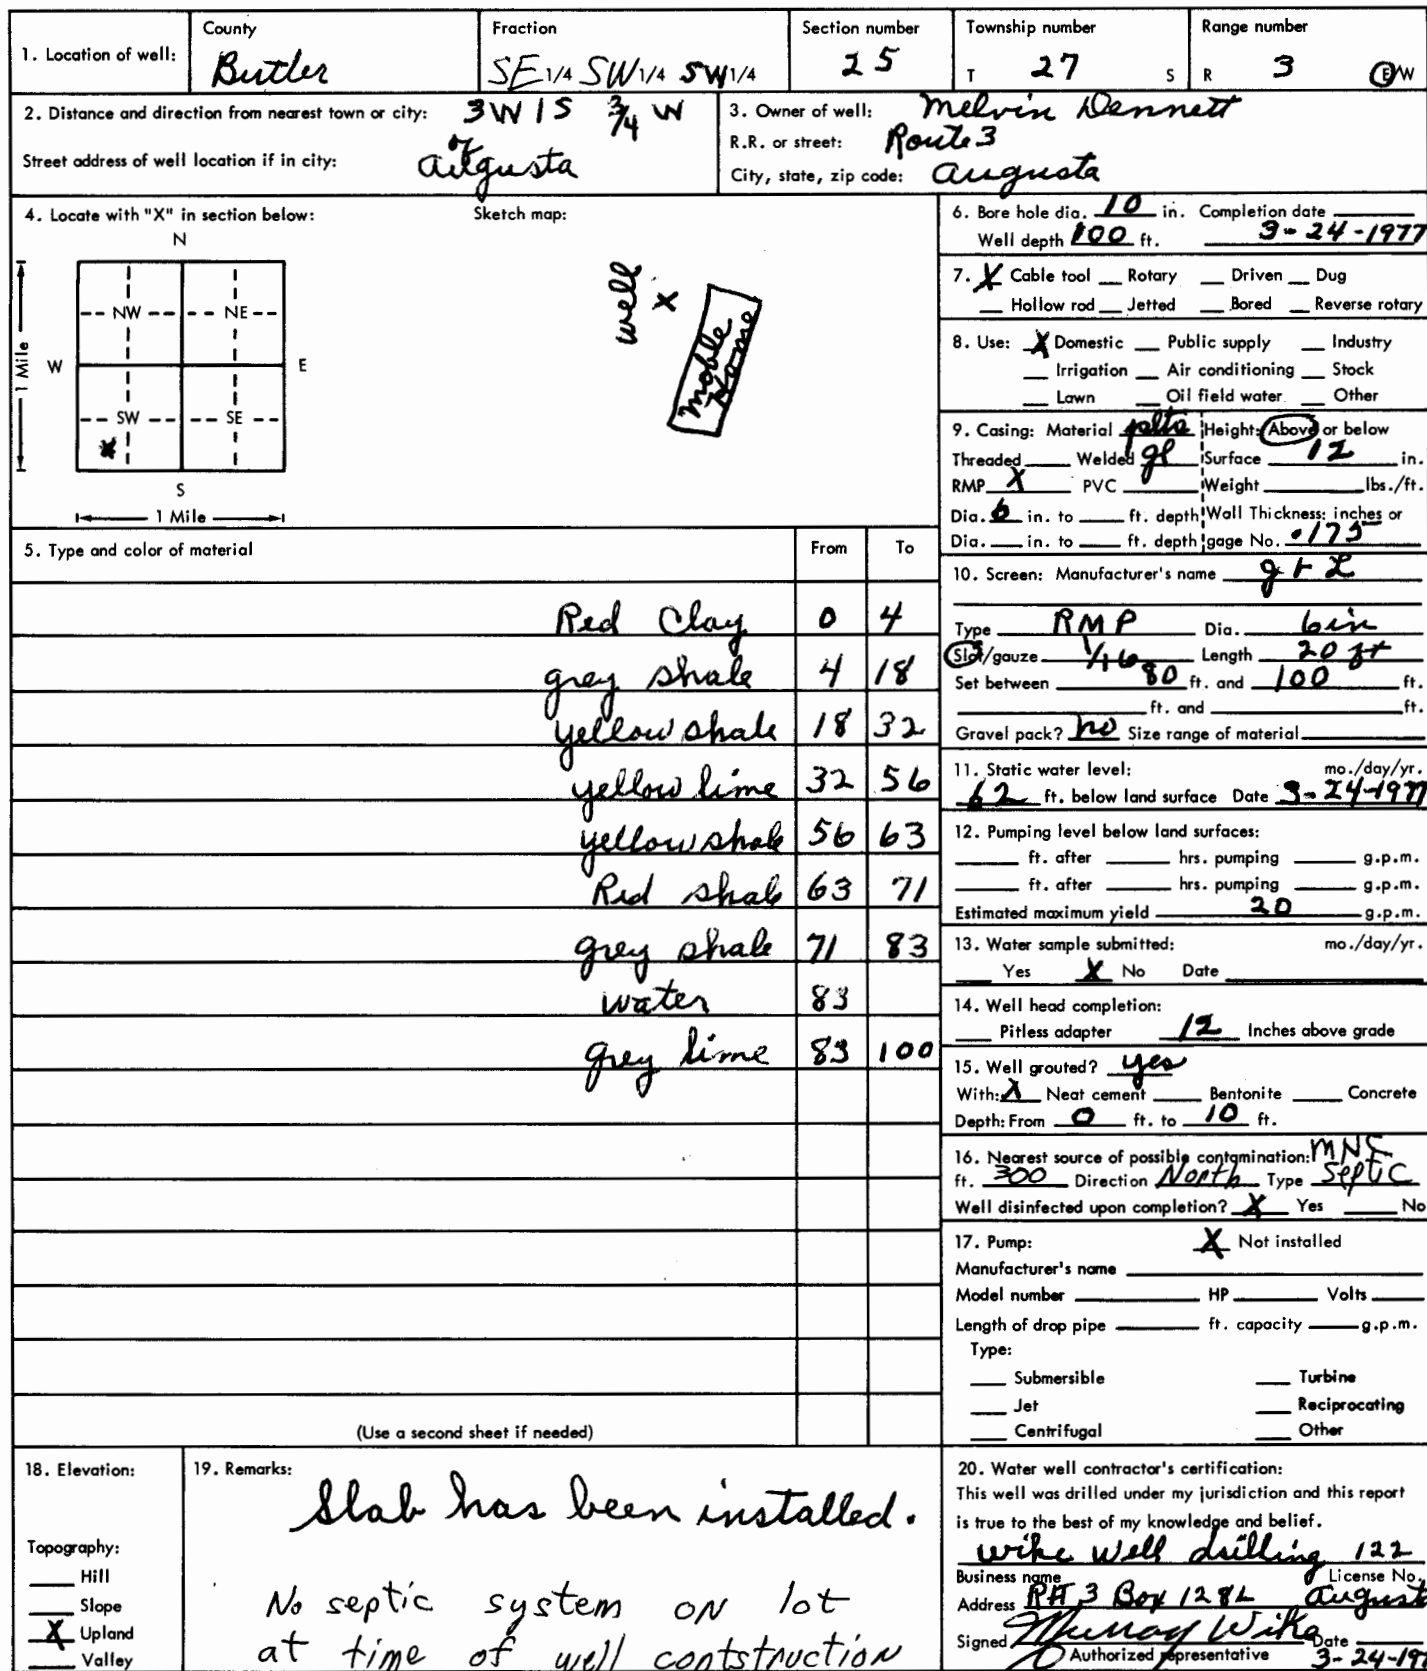 County Fraction Section number Township number Range number
1. Location of well: Butler SE 1/4 SW 1/4 SW 1/4 25 T 27 S R 3 E/W
2. Distance and direction from nearest town or city: 3W 1S 3/4 W
of
Street address of well location if in city: Augusta
3. Owner of well: Melvin Dennett
R.R. or street: Route 3
City, state, zip code: Augusta
4. Locate with "X" in section below: Sketch map:
N
NW NE
W E
SW SE
X
S
1 Mile
1 Mile
well
X
Moble Home
5. Type and color of material From To
Red Clay 0 4
grey shale 4 18
yellow shale 18 32
yellow lime 32 56
yellow shale 56 63
Red shale 63 71
grey shale 71 83
water 83
grey lime 83 100
(Use a second sheet if needed)
6. Bore hole dia. 10 in. Completion date
Well depth 100 ft. 3-24-1977
7. X Cable tool Rotary Driven Dug
Hollow rod Jetted Bored Reverse rotary
8. Use: X Domestic Public supply Industry
Irrigation Air conditioning Stock
Lawn Oil field water Other
9. Casing: Material Height: Above or below
Threaded Welded gl Surface 12 in.
RMP X PVC Weight lbs./ft.
Dia. 6 in. to ft. depth Wall Thickness: inches or
Dia. in. to ft. depth gage No. .175
10. Screen: Manufacturer's name g + L
Type RMP Dia. 6in
Slot/gauze 1/16 Length 20 ft
Set between 80 ft. and 100 ft.
ft. and ft.
Gravel pack? no Size range of material
11. Static water level: mo./day/yr.
62 ft. below land surface Date 3-24-1977
12. Pumping level below land surfaces:
ft. after hrs. pumping g.p.m.
ft. after hrs. pumping g.p.m.
Estimated maximum yield 20 g.p.m.
13. Water sample submitted: mo./day/yr.
Yes X No Date
14. Well head completion:
Pitless adapter 12 Inches above grade
15. Well grouted? yes
With: X Neat cement Bentonite Concrete
Depth: From 0 ft. to 10 ft.
16. Nearest source of possible contamination: MNC
ft. 300 Direction North Type Septic
Well disinfected upon completion? X Yes No
17. Pump: X Not installed
Manufacturer's name
Model number HP Volts
Length of drop pipe ft. capacity g.p.m.
Type:
Submersible Turbine
Jet Reciprocating
Centrifugal Other
18. Elevation:
Topography:
Hill
Slope
X Upland
Valley
19. Remarks:
Slab has been installed.
No septic system on lot
at time of well contstruction
20. Water well contractor's certification:
This well was drilled under my jurisdiction and this report
is true to the best of my knowledge and belief.
Wike Well drilling 122
Business name License No.
Address Rt 3 Box 128L Augusta
Signed Murray Wike Date
Authorized representative 3-24-197